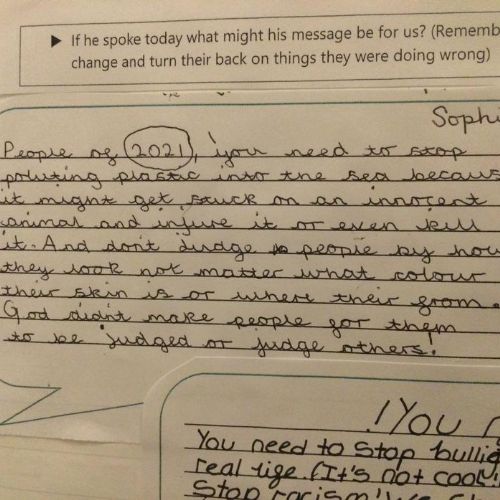 ▶ If he spoke today what might his message be for us? (Rememb
change and turn their back on things they were doing wrong)
Sophi
People of 2021, you need to stop
poluting plastic into the sea becaus
it might get stuck on an innocent
animal and injure it or even kill
it. And don't judge people by how
they look not matter what colour
their skin is or where their from.
God didn't make people for them
to be judged or judge others!
!You
You need to stop bullie
real life. (It's not cool!
Stop racism!